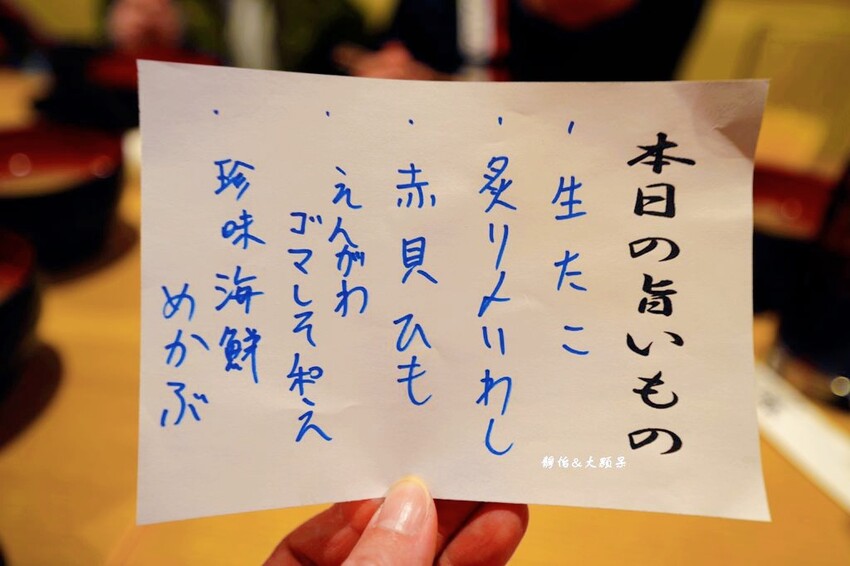 本日の旨いもの
・生たこ
・炙り〆いわし
・赤貝ひも
・えんがわ
ゴマしそ和え
・珍味海鮮
めかぶ